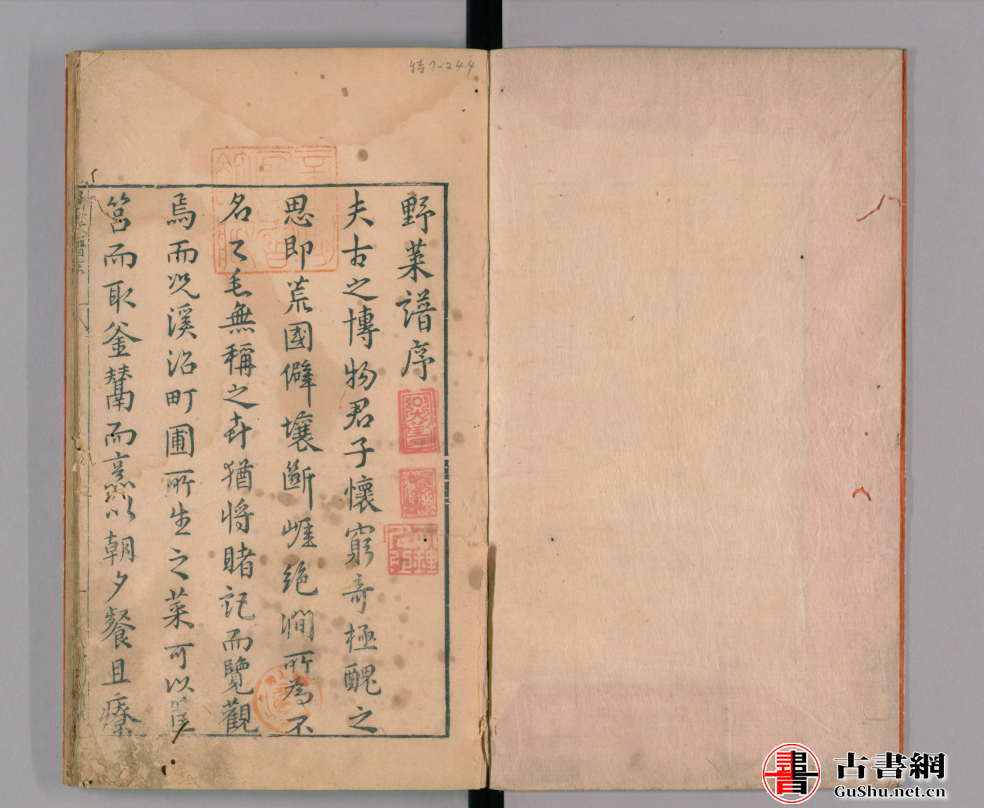 特7-244
野菜譜序
夫古之博物君子懷窮奇極醜之
思即荒國僻壤斷崕絶澗所為不
名之毛無稱之卉猶將睹記而覽觀
焉而况溪沼町圃所生之菜可以筐
筥而取釜鬵而烹以朝夕餐且療
古書網
GuShu.net.cn